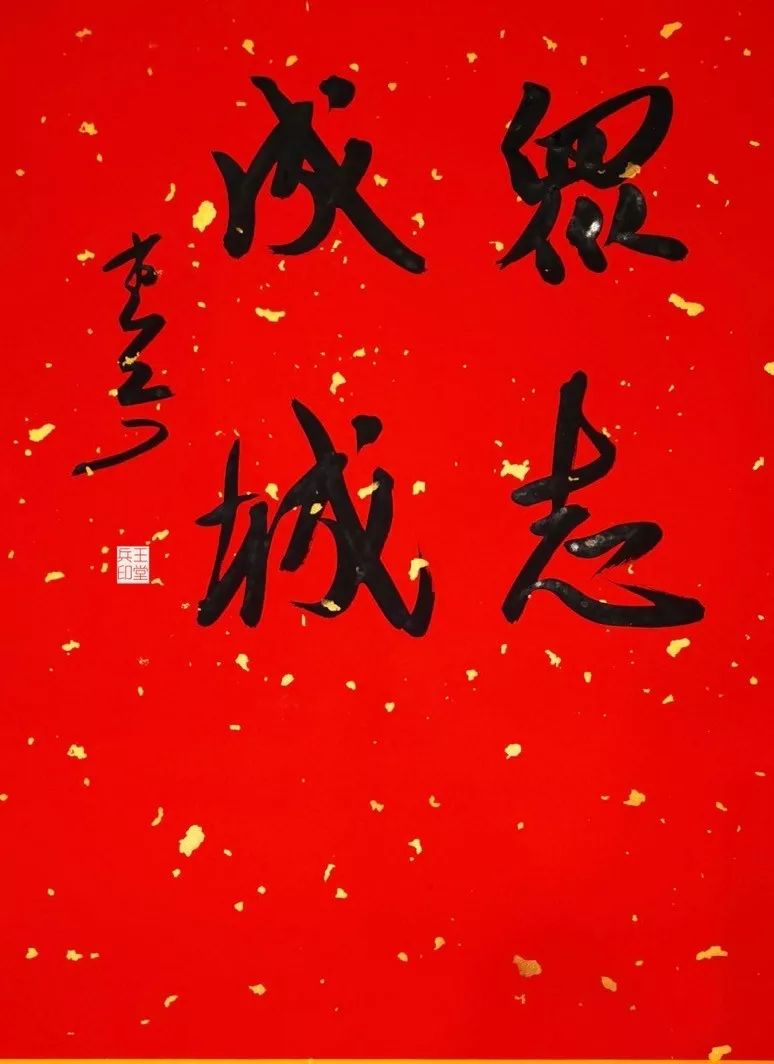 眾志
成城
王堂
兵印